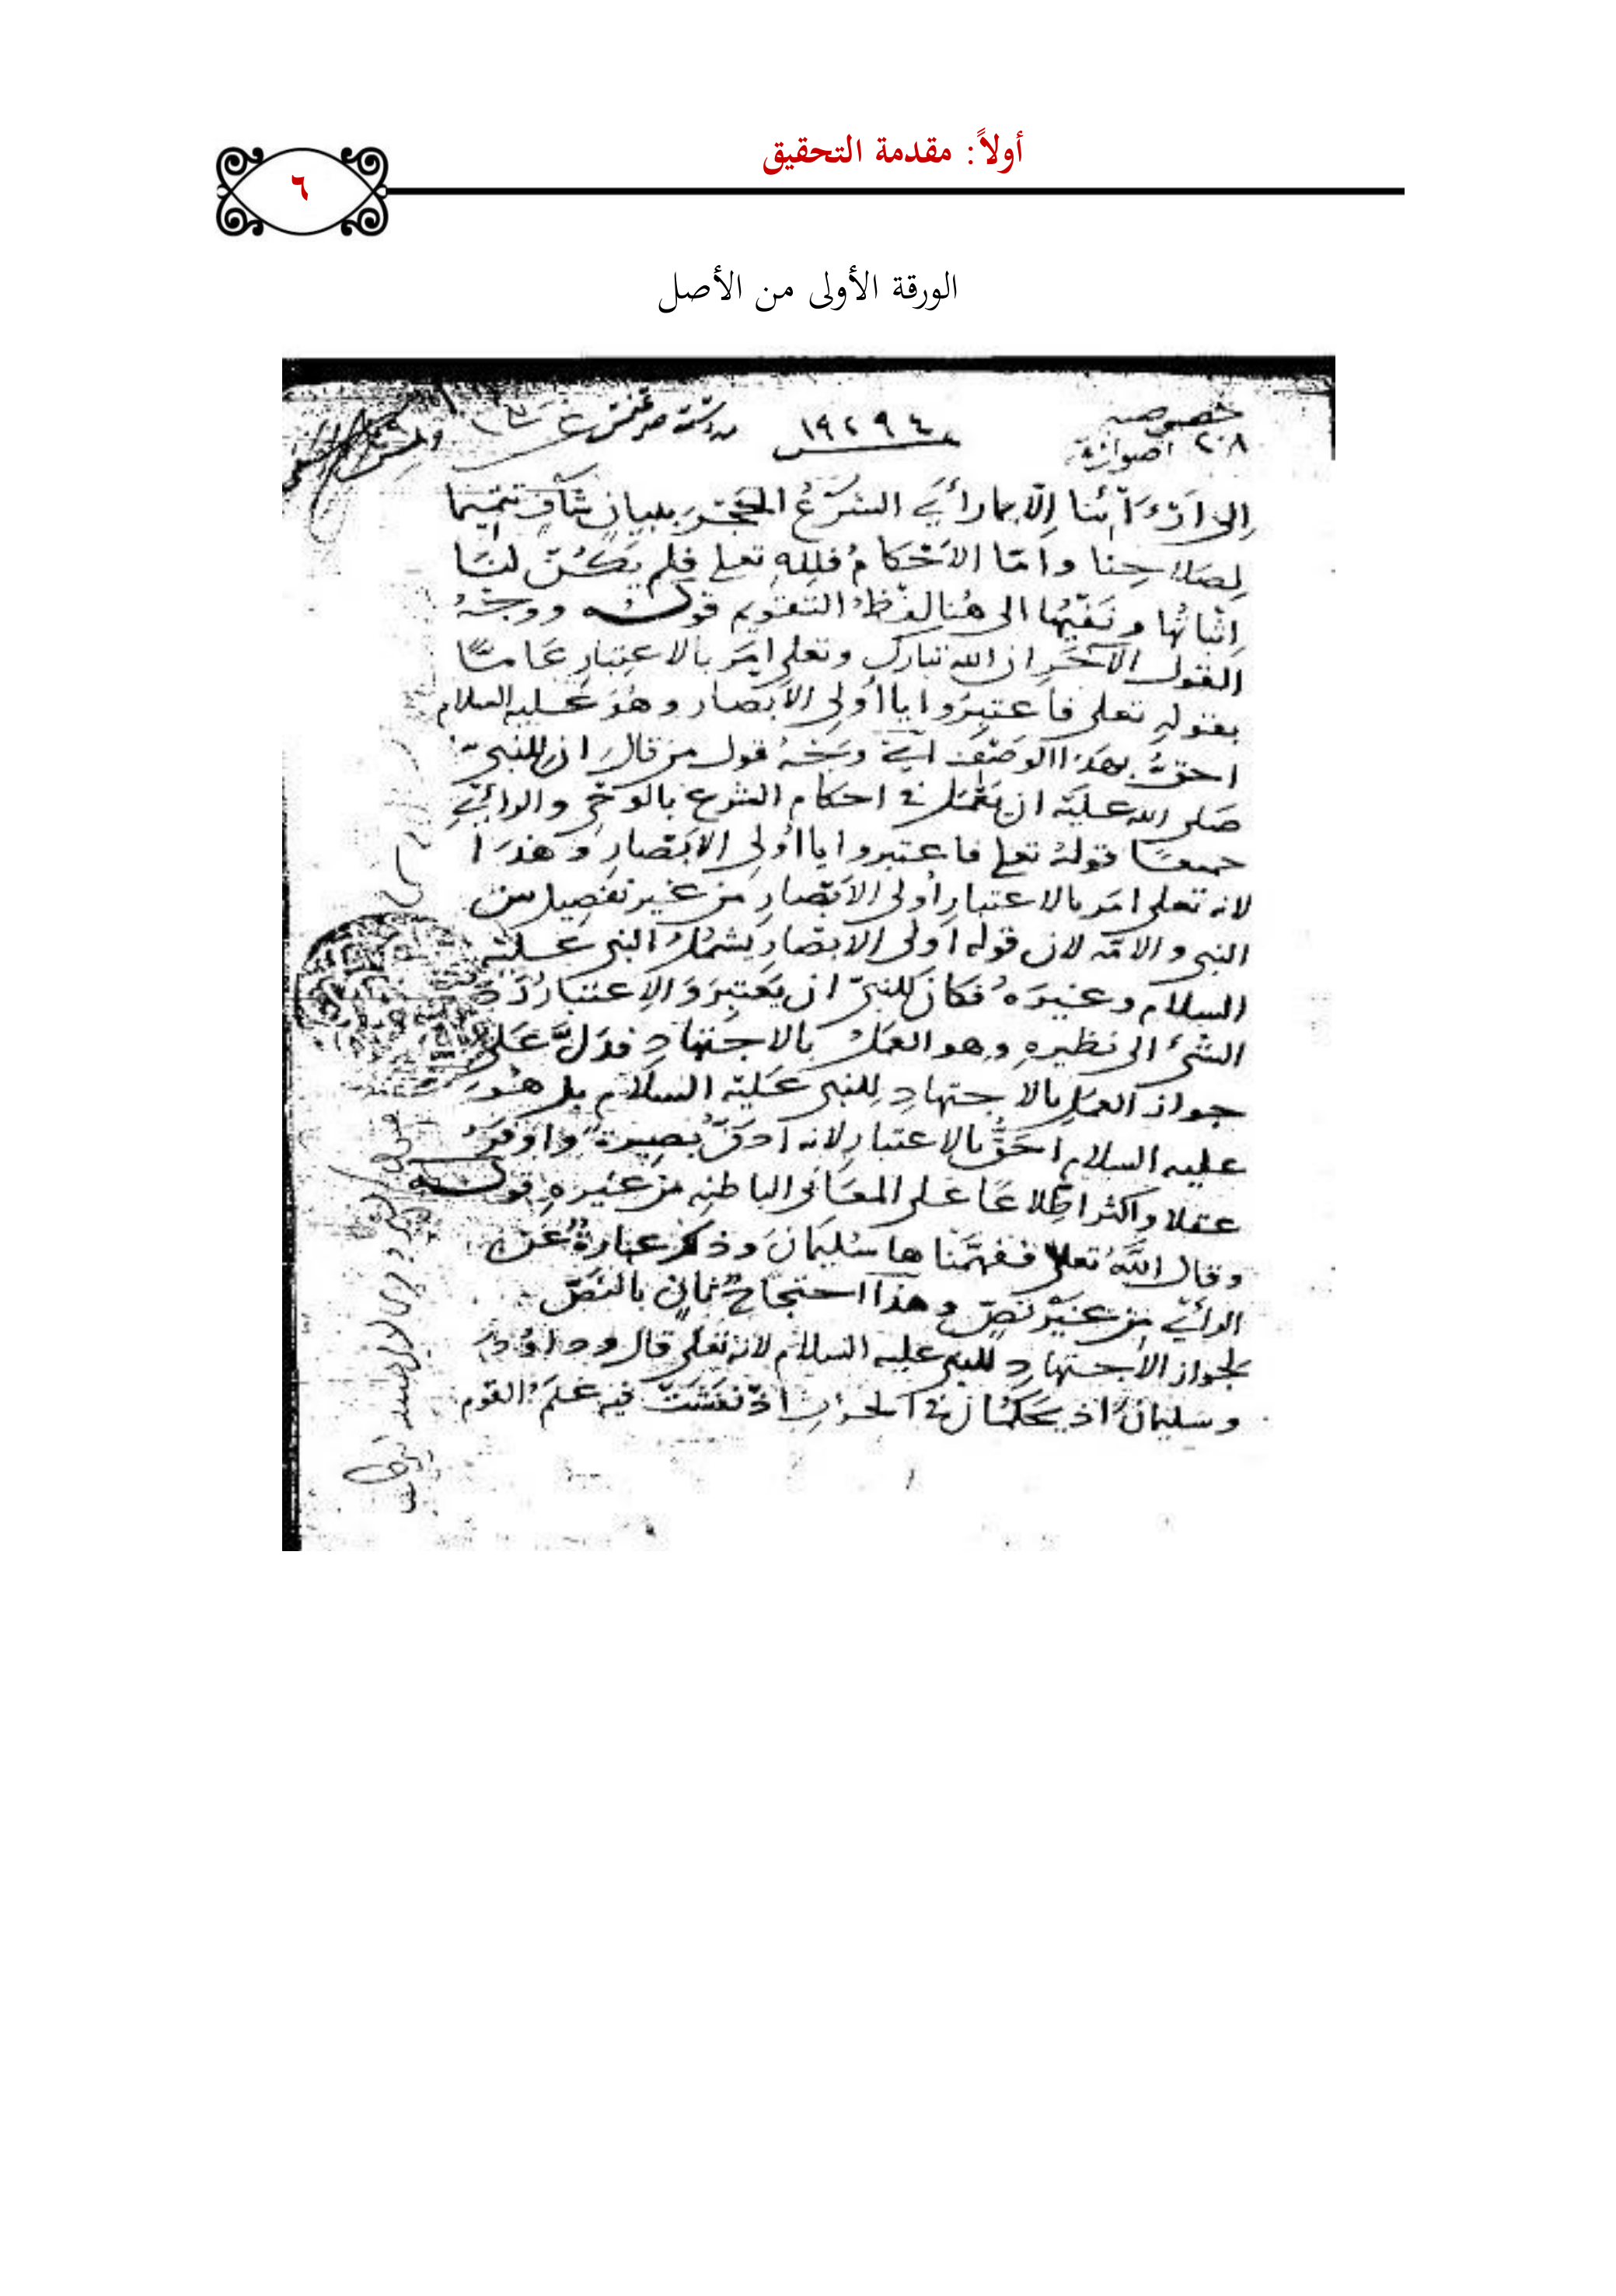 أولاً: مقدمة التحقيق
٦
الورقة الأولى من الأصل
خصوصيه
١٩٢٩٤
٢٠٨ اصول
الى آرائنا إلّا بما رأي الشرع بيان شاف تتميما
لصلاحنا وامّا الاحكام فلله تعلى فلم يكن لنا
اثباتها ونفيها الى هنا لفظ التقويم قوله ووجه
القول الآخر ان الله تبارك وتعلى امر بالاعتبار عامّا
بقوله تعلى فاعتبروا يا اولي الابصار وهو عليه السلام
احق بهذا الوصف اي وجه قول من قال ان للنبي
صلى الله عليه ان يعمل في احكام الشرع بالوحي والرأي
جميعا قوله تعلى فاعتبروا يا اولي الابصار وهذا
لانه تعلى امر بالاعتبار اولى الابصار من غير تفصيل بين
النبي والامّه لان قوله اولى الابصار يشمل النبي عليه
السلام وغيره فكان للنبي ان يعتبر والاعتبار ردّ
الشئ الى نظيره وهو العمل بالاجتهاد فدلّ على
جواز العمل بالاجتهاد للنبي عليه السلام بل هو
عليه السلام احقّ بالاعتبار لانه ادقّ بصيرة واوفر
عقلا واكثر اطّلاعا على المعانى الباطنه من غيره قوله
وقال الله تعلى ففهّمنا ها سليمان وذكر عبارة عن
الرأي من غير نصّ وهذا احتجاج ثانٍ بالنصّ
لجواز الاجتهاد للنبي عليه السلام لانه تعلى قال وداوُد
وسليمان اذ يحكمان في الحرث اذ نفشت فيه غنم القوم